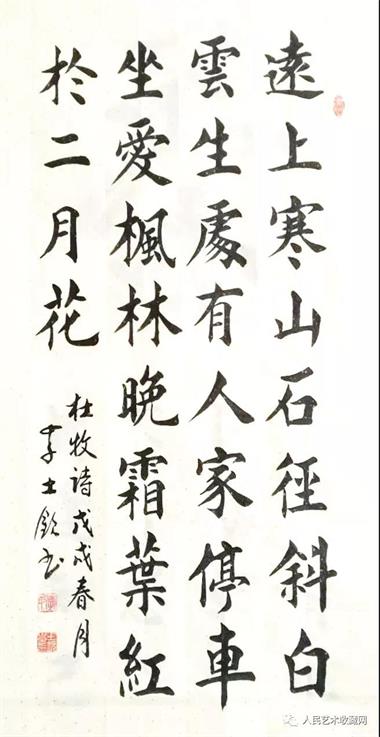 遠上寒山石徑斜白
雲生處有人家停車
坐愛楓林晚霜葉紅
於二月花
杜牧詩戊戌春月
李士欽书
人民艺术收藏网